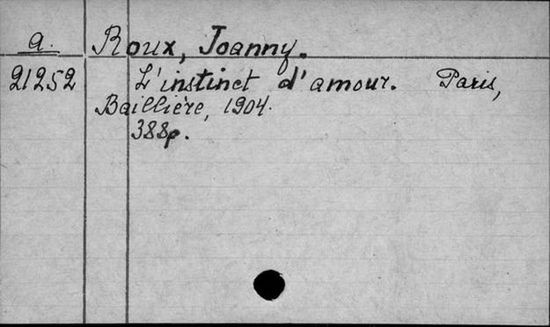 a. Roux, Joanny.
21252 L'instinct d'amour. Paris,
Baillière, 1904.
388p.